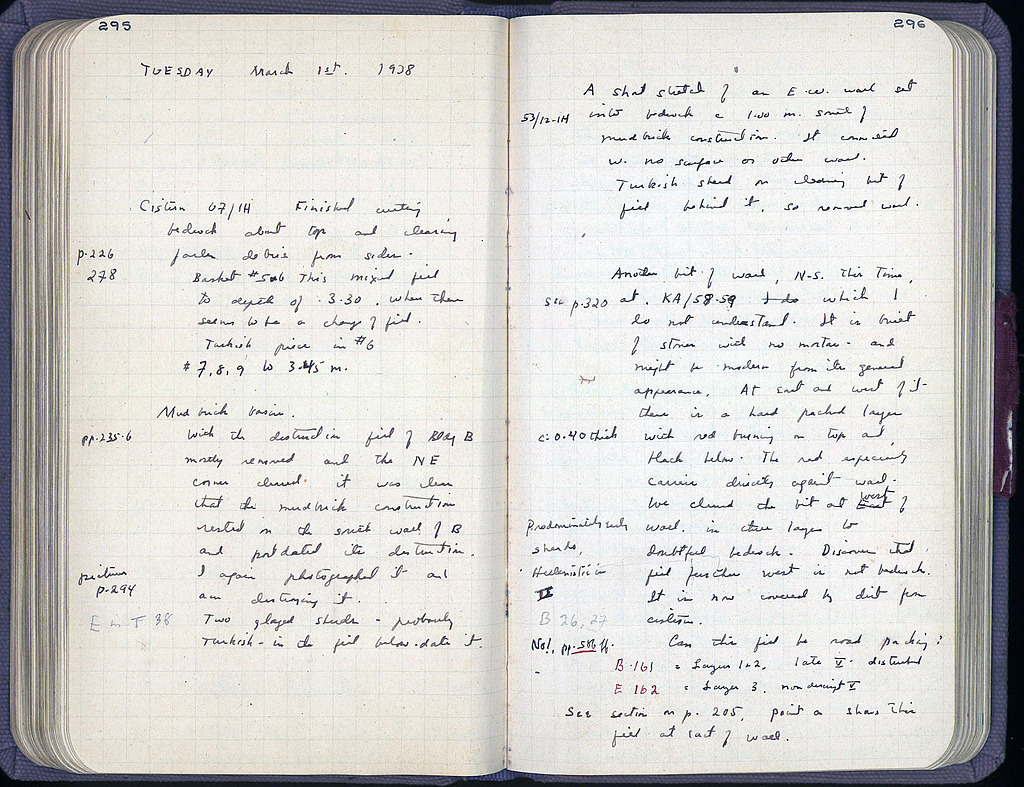 295
TUESDAY March 1st. 1938
Cistern 67/IH Finished cutting
bedrock about top and clearing
p. 226 fallen debris from sides.
278 Basket #5 This mixed fill
to depth of 3.30, when there
seems to be a change of fill.
Turkish piece in #6
#7, 8, 9 to 3.45 m.
Mud brick basin.
pp. 235-6 With the destruction fill of Bldg B
mostly removed and the NE
corner cleared it was clear
that the mudbrick construction
rested on the south wall of B
and postdated its destruction.
picture I again photographed it and
p. 294 am destroying it.
E in T 38 Two glazed sherds - probably
Turkish - in the fill below date it.
296
A short stretch of an E-W. wall set
53/12-IH into bedrock c 1.00 m. south of
mudbrick construction. It connected
w. no surface or other wall.
Turkish sherd on clearing bit of
fill behind it, so removed wall.
Another bit of wall, N-S. this time,
See p. 320 at KA/58-59 which I
do not understand. It is built
of stones with no mortar and
might be modern from its general
appearance. At east and west of it
there is a hard packed layer
c. 0.40 thick with red burning on top and
black below. The red especially
carries directly against wall.
We cleared the bit at West of
Predominately early wall. in three layers to
sherds, doubtful bedrock. Discover that
Hellenistic in fill further west is not bedrock.
II It is now covered by dirt from
B 26, 27 cistern.
No!, pp. 586 ff. Can this fill be road packing?
B 161 = Layers 1+2, late V. disturbed
E 162 = Layer 3. nondescript V
See section on p. 205, point a shows this
fill at east of wall.